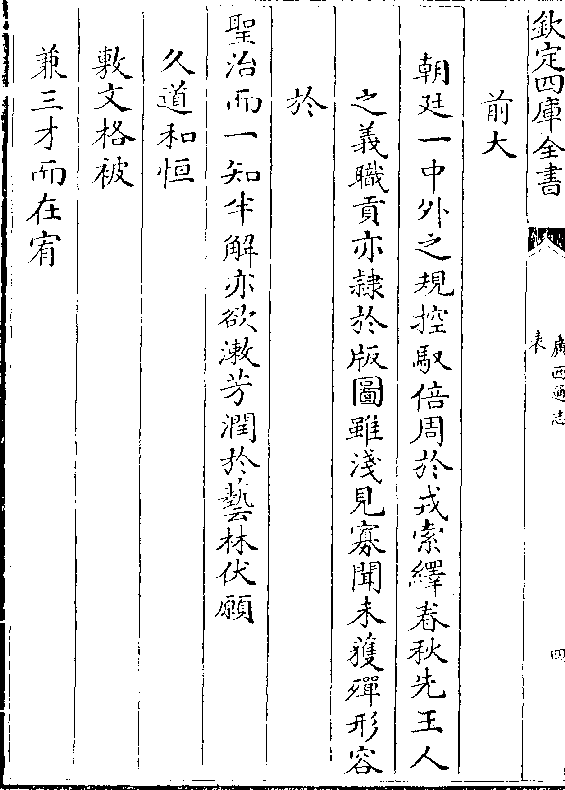 欽定四庫全書
廣西通志
表
四
前大
朝廷一中外之規控馭倍周於戎索繹春秋先王人
之義職貢亦隷於版圖雖淺見寡聞未獲殫形容
於
聖治而一知半解亦欲漱芳潤於藝林伏願
久道和恒
敷文格被
兼三才而在宥